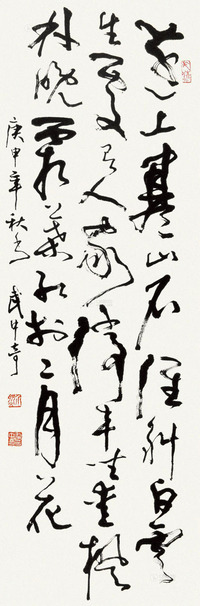 远上寒山石径斜白雲
生处有人家停车坐爱楓
林晚霜葉红于二月花
庚申年秋 武中奇